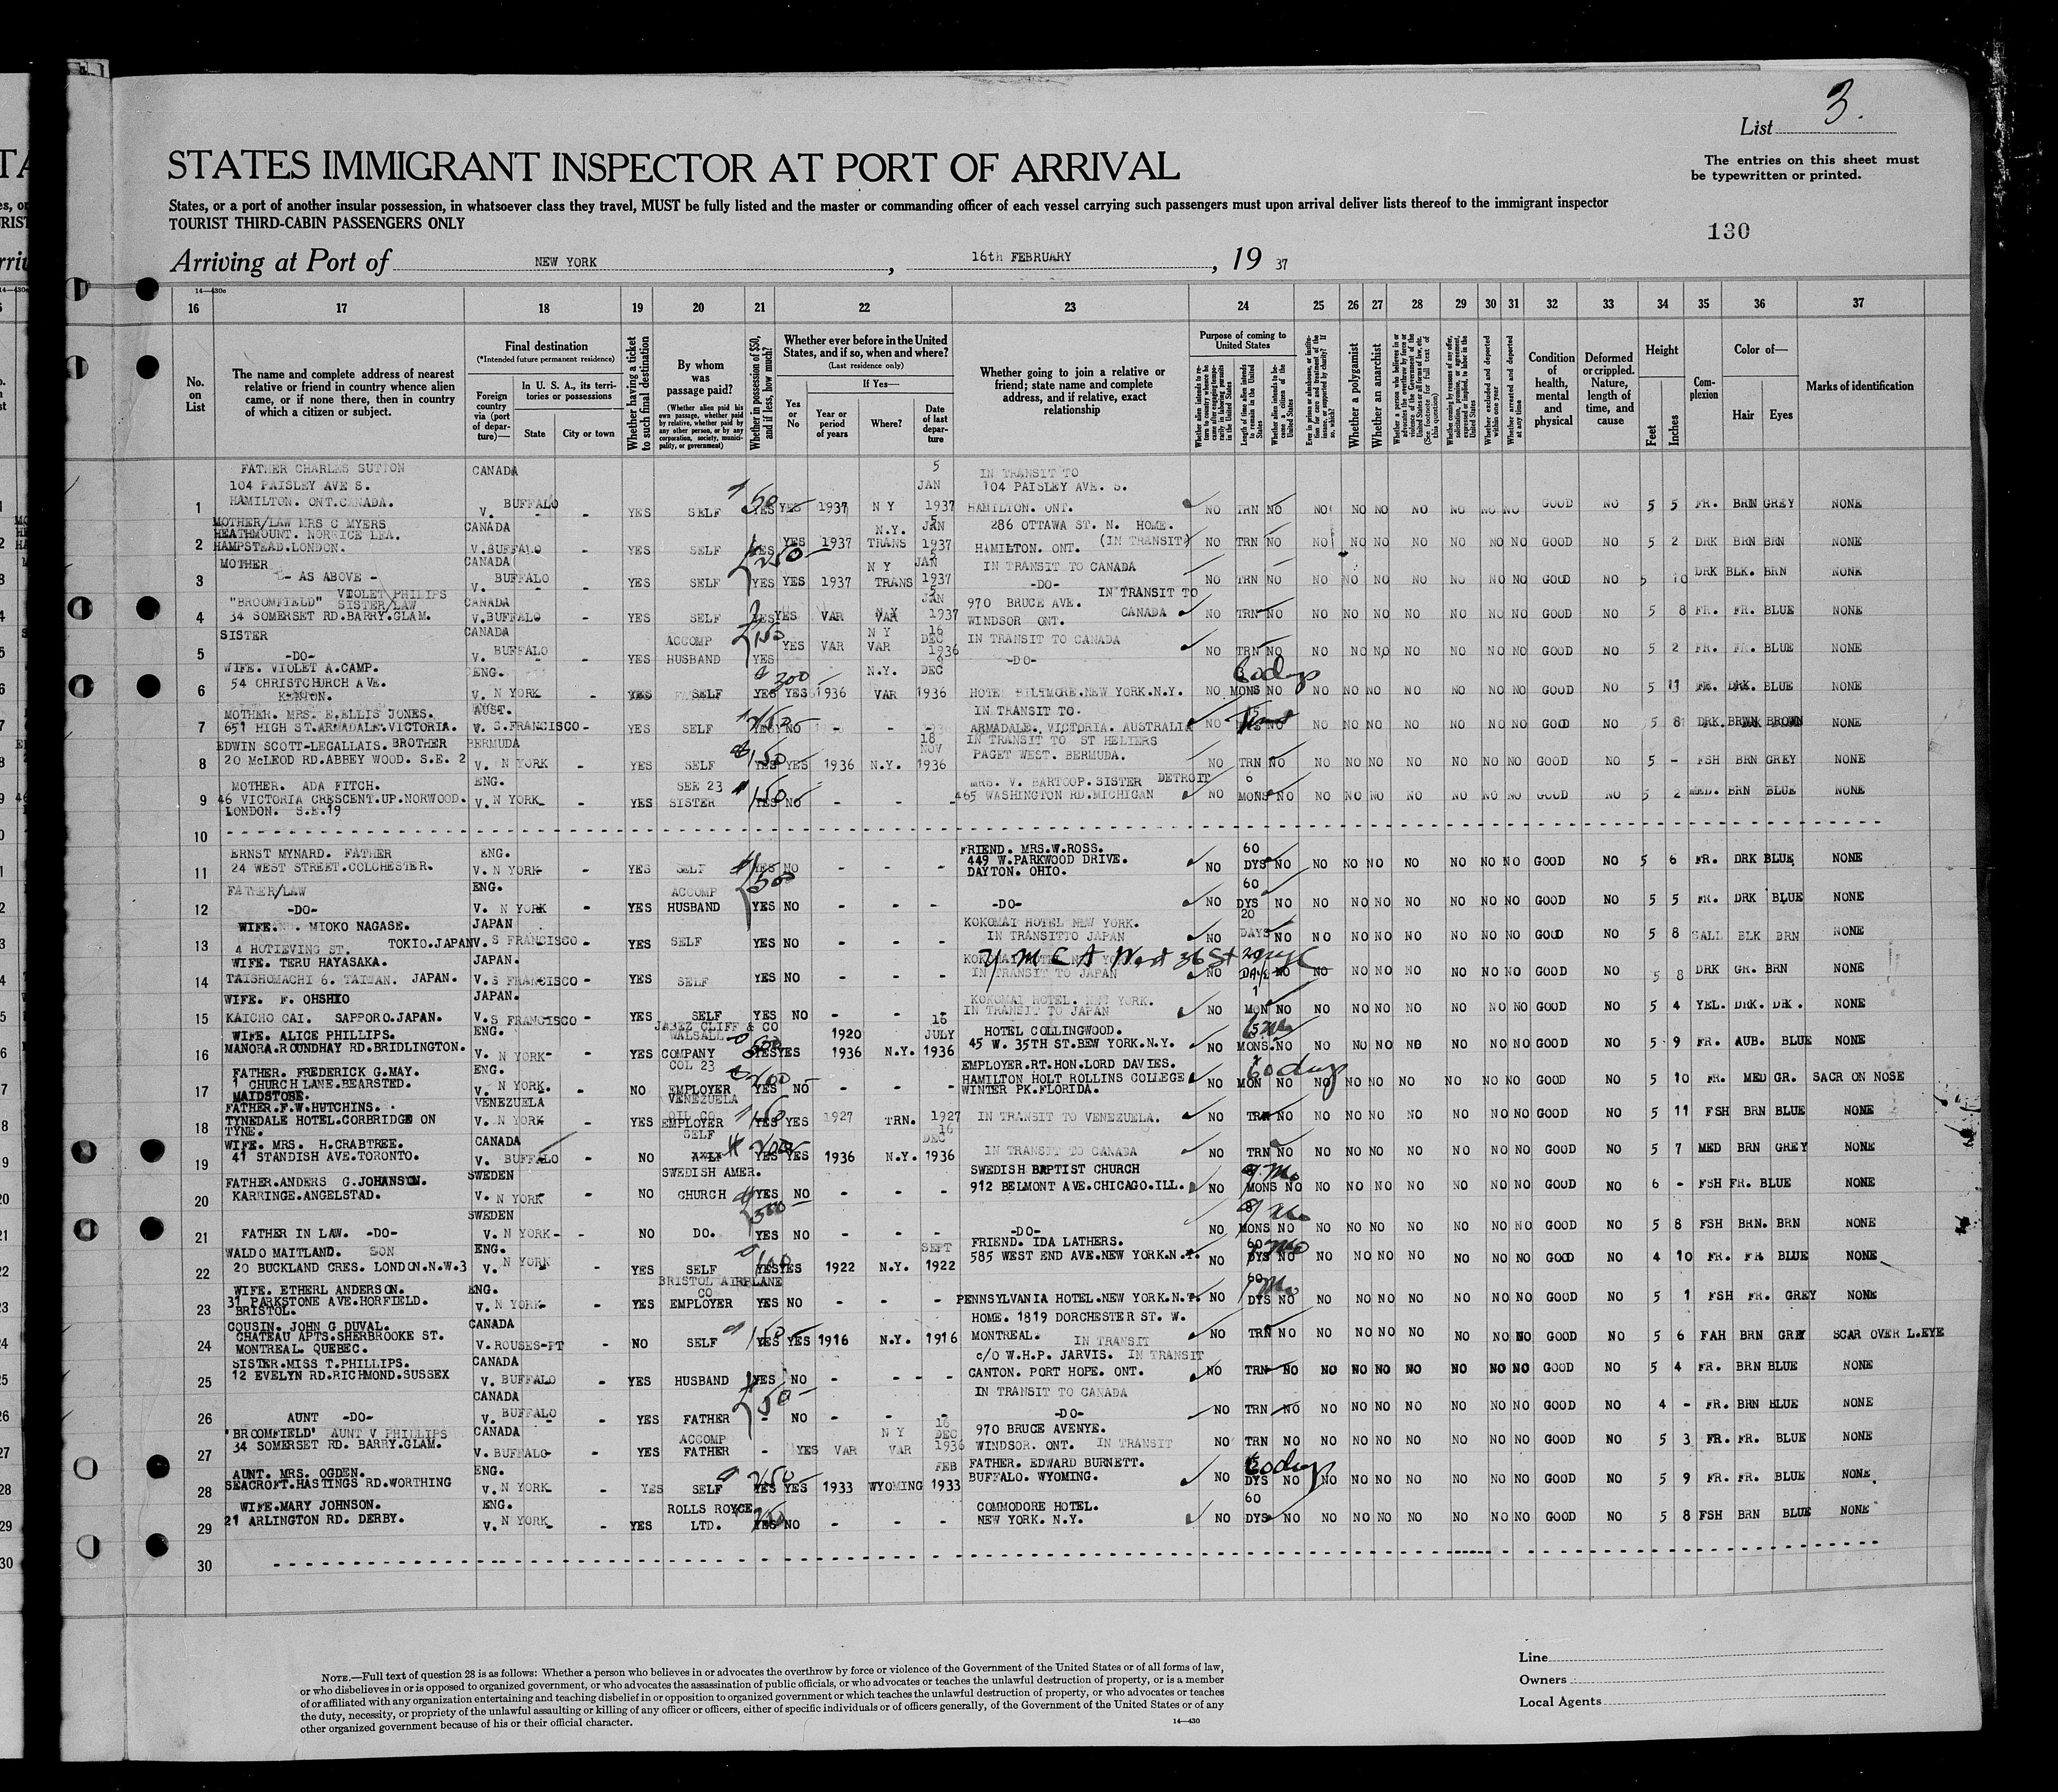 List 3.
STATES IMMIGRANT INSPECTOR AT PORT OF ARRIVAL
The entries on this sheet must
be typewritten or printed.
States, or a port of another insular possession, in whatsoever class they travel, MUST be fully listed and the master or commanding officer of each vessel carrying such passengers must upon arrival deliver lists thereof to the immigrant inspector
TOURIST THIRD-CABIN PASSENGERS ONLY
130
Arriving at Port of NEW YORK, 16th FEBRUARY, 19 37
14—430c
16 17 18 19 20 21 22 23 24 25 26 27 28 29 30 31 32 33 34 35 36 37
No. on List
The name and complete address of nearest relative or friend in country whence alien came, or if none there, then in country of which a citizen or subject.
Final destination
(*Intended future permanent residence)
Foreign country via (port of departure)—
In U. S. A., its territories or possessions
State
City or town
Whether having a ticket to such final destination
By whom was passage paid?
(Whether alien paid his own passage, whether paid by relative, whether paid by any other person, or by any corporation, society, municipality, or government)
Whether in possession of $50, and if less, how much?
Whether ever before in the United States, and if so, when and where?
(Last residence only)
Yes or No
If Yes—
Year or period of years
Where?
Date of last departure
Whether going to join a relative or friend; state name and complete address, and if relative, exact relationship
Purpose of coming to United States
Length of time alien intends to remain in the United States
Whether alien intends to become a citizen of the United States
Whether a polygamist
Whether an anarchist
Condition of health, mental and physical
Deformed or crippled. Nature, length of time, and cause
Height
Feet
Inches
Complexion
Color of—
Hair
Eyes
Marks of identification
1 FATHER CHARLES SUTTON 104 PAISLEY AVE S. HAMILTON. ONT.CANADA. CANADA V. BUFFALO - - YES SELF 50 YES YES 1937 N Y 5 JAN 1937 IN TRANSIT TO 104 PAISLEY AVE. S. HAMILTON. ONT. NO TRN NO NO NO NO NO NO NO NO GOOD NO 5 5 FR. BRN GREY NONE
2 MOTHER/LAW MRS C MYERS HEATHMOUNT. NORRICE LEA. HAMPSTEAD.LONDON. CANADA V.BUFFALO - YES SELF YES YES 1937 N.Y. TRANS 5 JAN 1937 286 OTTAWA ST. N. HOME. HAMILTON. ONT. (IN TRANSIT) NO TRN NO NO NO NO NO NO NO NO GOOD NO 5 2 DRK BRN BRN NONE
3 MOTHER - AS ABOVE - CANADA V. BUFFALO - YES SELF 250 YES YES 1937 N Y TRANS JAN 1937 IN TRANSIT TO CANADA -DO- NO TRN NO NO NO NO NO NO NO NO GOOD NO 5 10 DRK BLK. BRN NONE
4 "BROOMFIELD" VIOLET PHILIPS SISTER/LAW 34 SOMERSET RD.BARRY.GLAM. CANADA V.BUFFALO - YES SELF YES YES VAR N Y VAR 5 JAN 1937 970 BRUCE AVE. WINDSOR ONT. IN TRANSIT TO CANADA NO TRN NO NO NO NO NO NO NO NO GOOD NO 5 8 FR. FR. BLUE NONE
5 SISTER -DO- CANADA V. BUFFALO - YES ACCOMP HUSBAND 150 YES YES VAR N Y VAR 16 DEC 1936 IN TRANSIT TO CANADA -DO- NO TRN NO NO NO NO NO NO NO NO GOOD NO 5 2 FR. FR. BLUE NONE
6 WIFE. VIOLET A.CAMP. 54 CHRISTCHURCH AVE. KENTON. ENG. V. N YORK - YES SELF 300 YES YES 1936 N.Y. VAR DEC 1936 HOTEL BILTMORE.NEW YORK.N.Y. NO 60 days MONS NO NO NO NO NO NO NO NO GOOD NO 5 11 FR. DRK. BLUE NONE
7 MOTHER. MRS. E.ELLIS JONES. 651 HIGH ST.ARMADALE.VICTORIA. AUST. V. S.FRANCISCO - YES SELF YES NO - - - IN TRANSIT TO. ARMADALE. VICTORIA. AUSTRALIA NO NO NO NO NO NO NO NO NO GOOD NO 5 8 DRK. BRWN BROWN NONE
8 EDWIN SCOTT-LEGALLAIS. BROTHER 20 McLEOD RD.ABBEY WOOD. S.E. 2 BERMUDA V. N YORK - YES SELF 150 YES YES 1936 N.Y. 18 NOV 1936 IN TRANSIT TO ST HELIERS PAGET WEST. BERMUDA. NO TRN NO NO NO NO NO NO NO NO GOOD NO 5 - FSH BRN GREY NONE
9 MOTHER. ADA FITCH. 46 VICTORIA CRESCENT.UP.NORWOOD. LONDON. S.E.19 ENG. V. N YORK - YES SEE 23 SISTER 150 YES NO - - - MRS. V. BARTOOP.SISTER DETROIT 465 WASHINGTON RD.MICHIGAN NO 6 MONS NO NO NO NO NO NO NO NO GOOD NO 5 2 MED. BRN BLUE NONE
10
11 ERNST MYNARD. FATHER 24 WEST STREET.COLCHESTER. ENG. V. N YORK - YES SELF YES NO - - - FRIEND. MRS.W.ROSS. 449 W.PARKWOOD DRIVE. DAYTON. OHIO. NO 60 DYS NO NO NO NO NO NO NO NO GOOD NO 5 6 FR. DRK BLUE NONE
12 FATHER/LAW -DO- ENG. V. N YORK - YES ACCOMP HUSBAND 500 YES NO - - - -DO- NO 60 DYS NO NO NO NO NO NO NO NO GOOD NO 5 5 FR. DRK BLUE NONE
13 WIFE. MIOKO NAGASE. 4 HOTIEVING ST. TOKIO.JAPAN JAPAN V. S FRANCISCO - YES SELF YES NO - - - KOKOMAI HOTEL NEW YORK. IN TRANSITTO JAPAN NO 20 DAYS NO NO NO NO NO NO NO NO GOOD NO 5 8 SALL BLK BRN NONE
14 WIFE. TERU HAYASAKA. TAISHOMACHI 6. TAIWAN. JAPAN. JAPAN. V.S FRANCISCO - YES SELF YES NO - - - Y M C A West 36 St NYC IN TRANSIT TO JAPAN NO 20 DAYS NO NO NO NO NO NO NO NO GOOD NO 5 8 DRK GR. BRN NONE
15 WIFE. F. OHSHIO KAICHO CAI. SAPPORO.JAPAN. JAPAN. V.S FRANCISCO - YES SELF YES NO - - - KOKOMAI HOTEL. NEW YORK. IN TRANSIT TO JAPAN NO 1 MON NO NO NO NO NO NO NO NO GOOD NO 5 4 YEL. DRK. DRK. NONE
16 WIFE. ALICE PHILLIPS. MANORA.ROUNDHAY RD.BRIDLINGTON. ENG. V. N YORK - - YES JABEZ CLIFF & CO WALSALL COMPANY YES YES 1920 1936 N.Y. 16 JULY 1936 HOTEL COLLINGWOOD. 45 W. 35TH ST.BEW YORK.N.Y. NO MONS. NO NO NO NO NO NO NO NO GOOD NO 5 9 FR. AUB. BLUE NONE
17 FATHER. FREDERICK G.MAY. 1 CHURCH LANE.BEARSTED. MAIDSTONE. ENG. V. N YORK. - NO COL 23 EMPLOYER 200 YES NO - - - EMPLOYER.RT.HON.LORD DAVIES. HAMILTON HOLT ROLLINS COLLEGE WINTER PK.FLORIDA. NO 60 days MON NO NO NO NO NO NO NO NO GOOD NO 5 10 FR. MED GR. SACR ON NOSE
18 FATHER.F.W.HUTCHINS. TYNEDALE HOTEL.CORBRIDGE ON TYNE. VENEZUELA V. N YORK - YES VENEZUELA OIL CO EMPLOYER 150 YES YES 1927 TRN. 1927 IN TRANSIT TO VENEZUELA. NO TRN NO NO NO NO NO NO NO NO GOOD NO 5 11 FSH BRN BLUE NONE
19 WIFE. MRS. H.CRABTREE. 41 STANDISH AVE.TORONTO. CANADA V. BUFFALO - NO SELF 200 YES YES 1936 N.Y. 16 DEC 1936 IN TRANSIT TO CANADA NO TRN NO NO NO NO NO NO NO NO GOOD NO 5 7 MED BRN GREY NONE
20 FATHER.ANDERS G.JOHANSON. KARRINGE.ANGELSTAD. SWEDEN V. N YORK - NO SWEDISH AMER. CHURCH YES NO - - - SWEDISH BAPTIST CHURCH 912 BELMONT AVE.CHICAGO.ILL. NO MONS NO NO NO NO NO NO NO NO GOOD NO 6 - FSH FR. BLUE NONE
21 FATHER IN LAW. -DO- SWEDEN V. N YORK - - NO DO. 500 YES NO - - - -DO- NO MONS NO NO NO NO NO NO NO NO GOOD NO 5 8 FSH BRN. BRN NONE
22 WALDO MAITLAND. SON 20 BUCKLAND CRES. LONDON.N.W.3 ENG. V. N YORK - YES SELF 100 YES YES 1922 N.Y. SEPT 1922 FRIEND. IDA LATHERS. 585 WEST END AVE.NEW YORK.N.Y. NO 60 DYS NO NO NO NO NO NO NO NO GOOD NO 4 10 FR. FR. BLUE NONE
23 WIFE. ETHERL ANDERSON. 31 PARKSTONE AVE.HORFIELD. BRISTOL. ENG. V. N YORK - YES BRISTOL AIRPLANE CO EMPLOYER YES NO - - - PENNSYLVANIA HOTEL.NEW YORK.N.Y. NO 60 DYS NO NO NO NO NO NO NO NO GOOD NO 5 1 FSH FR. GREY NONE
24 COUSIN. JOHN G DUVAL. CHATEAU APTS.SHERBROOKE ST. MONTREAL. QUEBEC. CANADA V.ROUSES-PT - NO SELF 150 YES YES 1916 N.Y. 1916 HOME. 1819 DORCHESTER ST. W. MONTREAL. IN TRANSIT NO TRN NO NO NO NO NO NO NO NO GOOD NO 5 6 FAH BRN GREY SCAR OVER L.EYE
25 SISTER.MISS T.PHILLIPS. 12 EVELYN RD.RICHMOND.SUSSEX CANADA V. BUFFALO - YES HUSBAND YES NO - - - c/o W.H.P. JARVIS. IN TRANSIT CANTON. PORT HOPE. ONT. NO TRN NO NO NO NO NO NO NO NO GOOD NO 5 4 FR. BRN BLUE NONE
26 AUNT -DO- CANADA V. BUFFALO - YES FATHER 50 - NO - - - IN TRANSIT TO CANADA -DO- NO TRN NO NO NO NO NO NO NO NO GOOD NO 4 - FR. BRN BLUE NONE
27 'BROOMFIELD' AUNT V PHILLIPS 34 SOMERSET RD. BARRY.GLAM. CANADA V. BUFFALO - YES ACCOMP FATHER - YES VAR N Y VAR 16 DEC 1936 970 BRUCE AVENYE. WINDSOR. ONT. IN TRANSIT NO TRN NO NO NO NO NO NO NO NO GOOD NO 5 3 FR. FR. BLUE NONE
28 AUNT. MRS. OGDEN. SEACROFT.HASTINGS RD.WORTHING ENG. V. N YORK - YES SELF 250 YES YES 1933 WYOMING FEB 1933 FATHER. EDWARD BURNETT. BUFFALO. WYOMING. NO 60 days DYS NO NO NO NO NO NO NO NO GOOD NO 5 9 FR. FR. BLUE NONE
29 WIFE.MARY JOHNSON. 21 ARLINGTON RD. DERBY. ENG. V. N YORK - - YES ROLLS ROYCE. LTD. YES NO - - - COMMODORE HOTEL. NEW YORK. N.Y. NO 60 DYS NO NO NO NO NO NO NO NO GOOD NO 5 8 FSH BRN BLUE NONE
30
NOTE.—Full text of question 28 is as follows: Whether a person who believes in or advocates the overthrow by force or violence of the Government of the United States or of all forms of law,
or who disbelieves in or is opposed to organized government, or who advocates the assassination of public officials, or who advocates or teaches the unlawful destruction of property, or is a member
of or affiliated with any organization entertaining and teaching disbelief in or opposition to organized government or which teaches the unlawful destruction of property, or who advocates or teaches
the duty, necessity, or propriety of the unlawful assaulting or killing of any officer or officers, either of specific individuals or of officers generally, of the Government of the United States or of any
other organized government because of his or their official character.
14—430
Line
Owners
Local Agents